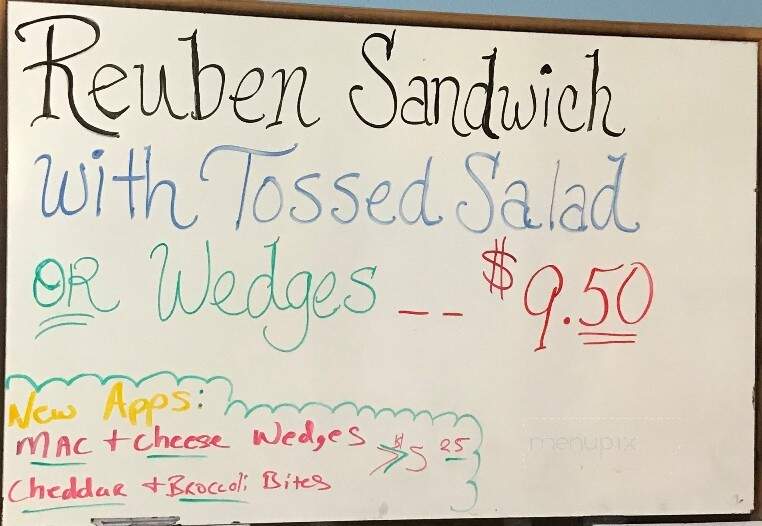 Reuben Sandwich
with Tossed Salad
OR Wedges -- $9.50
New Apps:
MAC + Cheese Wedges
$5 25
Cheddar + Broccoli Bites
menupix